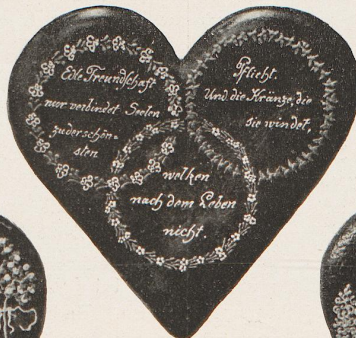 Edle Freundschaft
nur verbindet Seelen
zuder schön-
sten
Pflicht.
Und die Kränze, die
sie windet,
welken
nach dem Leben
nicht.